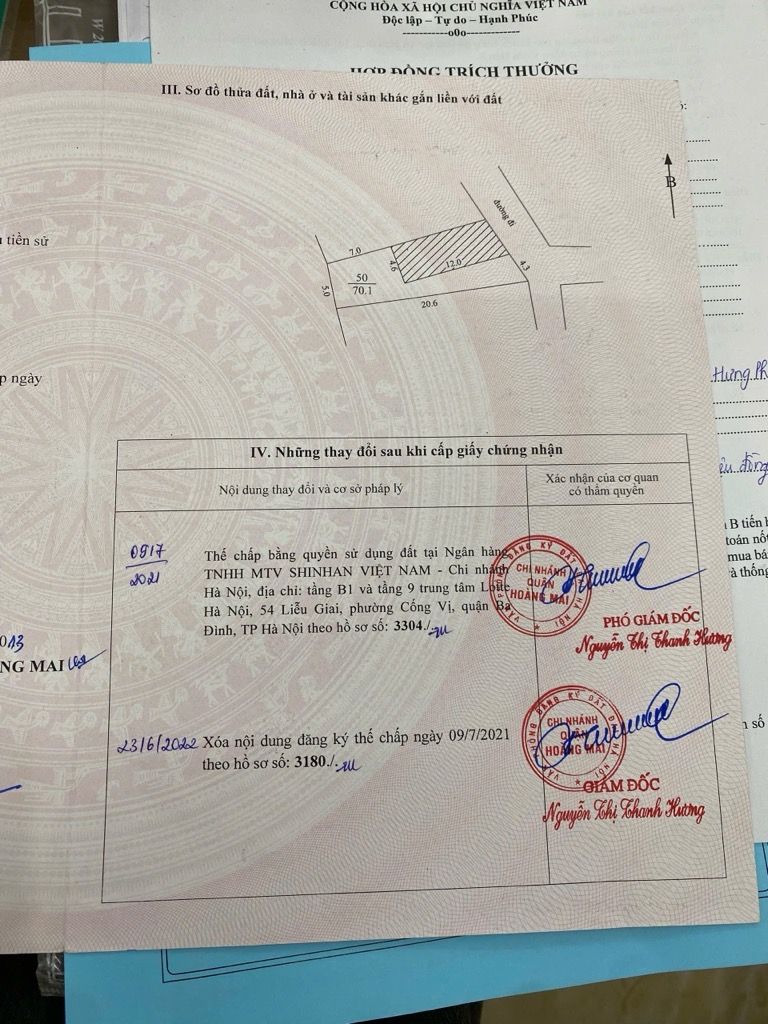 CỘNG HÒA XÃ HỘI CHỦ NGHĨA VIỆT NAM
Độc lập – Tự do – Hạnh Phúc
-----------o0o-------------
HỢP ĐỒNG TRÍCH THƯỞNG
III. Sơ đồ thửa đất, nhà ở và tài sản khác gắn liền với đất
B
đường đi
7.0
4.6
12.0
4.3
5.0
50
70.1
20.6
tiền sử
p ngày
Hưng Ph
đồng
B tiến
toán
mua bá
thống
số
013
NG MAI
IV. Những thay đổi sau khi cấp giấy chứng nhận
Nội dung thay đổi và cơ sở pháp lý
Xác nhận của cơ quan
có thẩm quyền
0917
2021
Thế chấp bằng quyền sử dụng đất tại Ngân hàng
TNHH MTV SHINHAN VIỆT NAM - Chi nhánh
Hà Nội, địa chỉ: tầng B1 và tầng 9 trung tâm Lotte
Hà Nội, 54 Liễu Giai, phường Cống Vị, quận Ba
Đình, TP Hà Nội theo hồ sơ số: 3304./.
VĂN PHÒNG ĐĂNG KÝ ĐẤT ĐAI HÀ NỘI
CHI NHÁNH
QUẬN
HOÀNG MAI
PHÓ GIÁM ĐỐC
Nguyễn Thị Thanh Hương
23/6/2022 Xóa nội dung đăng ký thế chấp ngày 09/7/2021
theo hồ sơ số: 3180./.
VĂN PHÒNG ĐĂNG KÝ ĐẤT ĐAI HÀ NỘI
CHI NHÁNH
QUẬN
HOÀNG MAI
GIÁM ĐỐC
Nguyễn Thị Thanh Hương